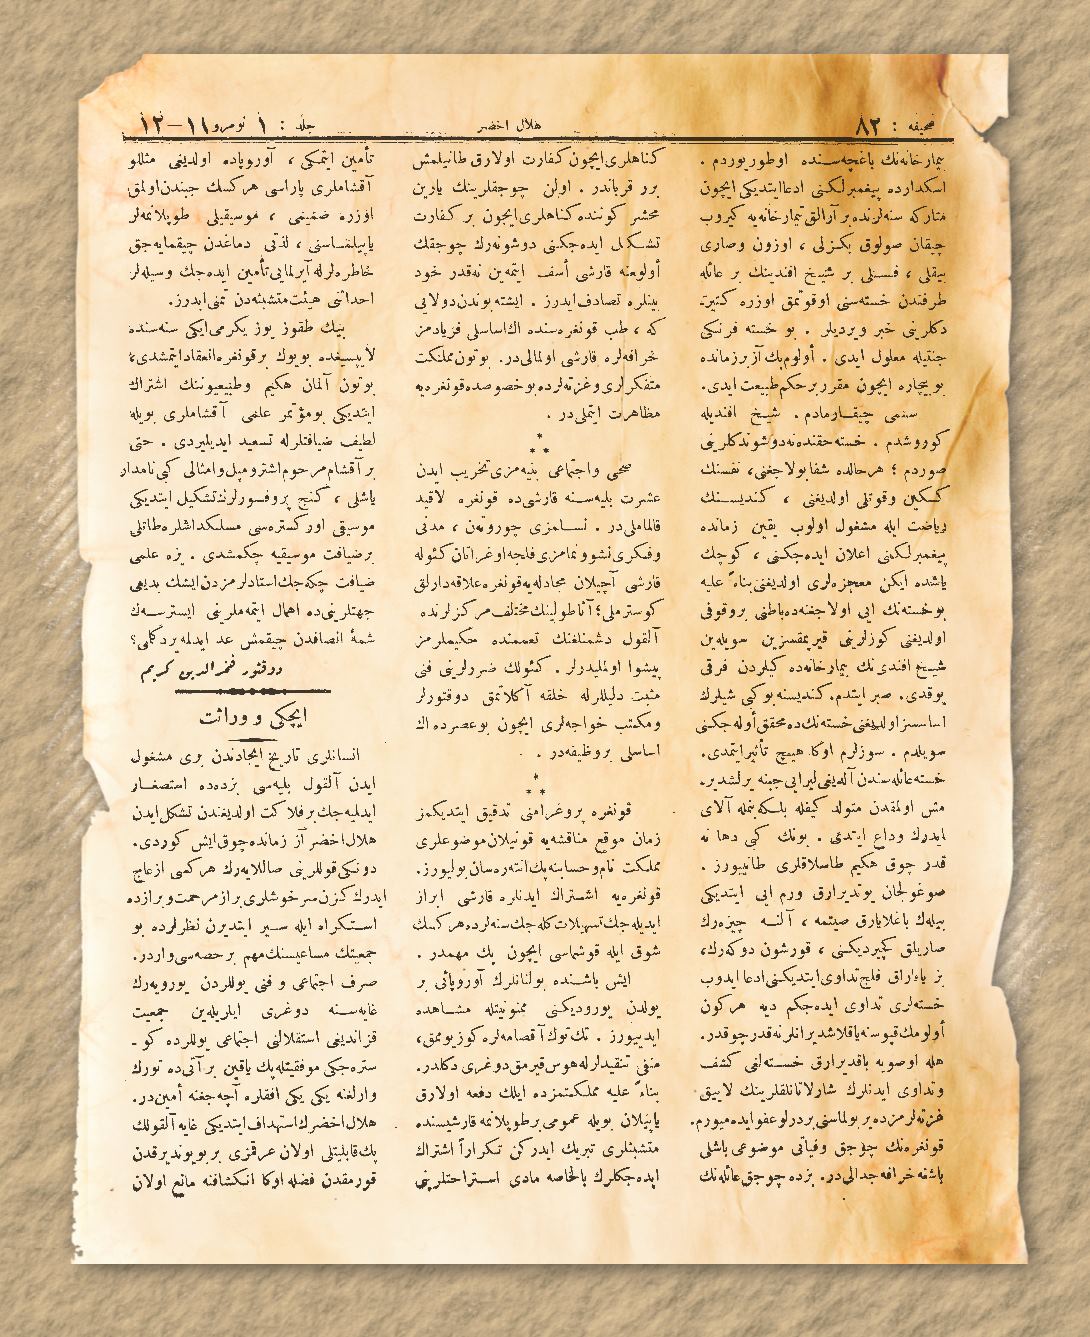 صحیفه : ٨٢
هلال اخضر
جلد : ١ نومرو ١١–١٢
بیمارخانه‌نك باغچه‌سنده اوطوریوردم .
اسكدارده پیغمبرلكنی ادعا ایتدیكی ایچون
متاركه سنه‌لرنده بر آرالق تیمارخانه‌یه كیروب
چیقان صولوق بكزلی ، اوزون وصاری
بیقلی ، فسلی بر شیخ افندینك بر عائله
طرفندن خسته‌سنی اوقوتمق اوزره كتیر-
دكلرینی خبر ویردیلر . بو خسته فرنكی
جنتیله معلول ایدی . أولوم پك آز بر زمانده
بو بیچاره ایچون مقرر بر حكم طبیعت ایدی.
سسمی چیقارمادم . شیخ افندیله
كوروشدم . خسته حقنده نه دوشوندكلرینی
صوردم ؛ هر حالده شفا بولاجغنی، نفسنك
كسكین وقوتلی اولدیغنی ، كندیسنك
ریاضت ایله مشغول اولوب یقین زمانده
پیغمبرلكنی اعلان ایده‌جكنی ، كوچك
یاشده ایكن معجزه‌لری اولدیغنی بناءً علیه
بو خسته‌نك ایی اولاجغنه ده باطنی بر وقوفی
اولدیغنی كوزلرینی قیرپمقسزین سویله‌ین
شیخ افندی‌نك بیمارخانه‌ده كیلردن فرقی
یوقدی. صبر ایتدم. كندیسنه بو كبی شیلرك
اساسسز اولدیغنی خسته‌نك ده محقق أوله جكنی
سویلدم . سوزلرم اوكا هیچ تأثیر ایتمدی.
خسته عائله‌سندن آلدیغی لیرایی جبنه یرلشدیر.
مش اولمقدن متولد كیفله بلكه بنمله آلای
ایدرك وداع ایتدی . بونك كبی دها نه
قدر چوق هكیم طاسلاقلری طانییورز .
صوغولجان یوتدیرارق ورم ایی ایتدیكی
بیله‌ك باغلایارق صیتمه ، آلنه چیزه‌رك
صاریلق كچیردیكنی ، قورشون دوكه‌رك،
خسته‌لری تداوی ایده‌جكم دیه هركون
أولومك قپوسنه یاقلاشدیرانلر نه‌قدر چوقدر.
هله اوصوبه باقدیرارق خسته‌لغی كشف
وتداوی ایدنلرك شارلاتانلقلرینك لاییق
غزته‌لرمزده یر بولماسنی بر درلو عفو ایده‌میورم.
قونغره‌نك چوجق وفیاتی موضوعی باشلی
باشنه خرافه جدالی‌در. بزده چوجق عائله‌نك
كناهلری ایچون كفارت اولارق طانیلمش
برر قرباندر . اولن چوجقلرینك یارین
محشر كوننده كناهلری ایچون بر كفارت
تشكیل ایده‌جكنی دوشونه‌رك چوجغك
أولومنه قارشی أسف ایتمه‌ین نه‌قدر خود
بینلره تصادف ایدرز . ایشته بوندن دولایی
كه ، طب قونغره‌سنده اك اساسلی فریادمز
خرافه‌لره قارشی اولمالی‌در. بوتون مملكت
متفكرلری وغزته‌لرده بو خصوصده قونغره‌یه
مظاهرت ایتملی‌در .
* * *
صحی واجتماعی بنیه‌مزی تخریب ایدن
عشرت بلیه‌سنه قارشی ده قونغره لاقید
قالماملی‌در . نسلمزی چوروتن ، مدنی
وفكری نشوونمامزی فلجه اوغراتان كئوله
قارشی آچیلان مجادله‌یه قونغره علاقه‌دارلق
كوسترملی ؛ آناطولینك مختلف مركزلرنده
آلقول دشمنلغنك تعممنده حكیملرمز
پیشوا اولملیدرلر . كئولك ضررلرینی فنی
مثبت دلیللرله خلقه آكلاتمق دوقتورلر
ومكتب خواجه‌لری ایچون بو عصرده اك
اساسلی بر وظیفه‌در .
* * *
قونغره پروغرامنی تدقیق ایتدیكمز
زمان موقع مناقشه‌یه قونیلان موضوعلری
مملكت نام وحسابنه پك انته‌ره‌سان بولیورز.
قونغره‌یه اشتراك ایدنلره قارشی ابراز
ایدیله‌جك تسهیلات كله‌جك سنه‌لرده هركسك
شوق ایله قوشماسی ایچون پك مهمدر .
ایش باشنده بولنانلرك آوروپائی بر
یولدن یورودیكنی ممنونیتله مشاهده
ایدییورز . تك توك آقصامه‌لره كوز یوممق،
منفی تنقیدلرله هوس قیرمق دوغری دكلدر.
بناءً علیه مملكتمزده ایلك دفعه اولارق
یاپیلان بویله عمومی بر طوپلانمه قارشیسنده
متشبثلری تبریك ایدركن تكراراً اشتراك
ایده‌جكلرك بالخاصه مادی استراحتلرینی
تأمین ایتمكی ، آوروپاده اولدیغی مثللو
آقشاملری پاراسی هر كسك جبندن اولمق
اوزره ضمیمی ، موسیقیلی طوپلانمه‌لر
یاپیلماسنی ، لذتی دماغدن چیقمایه‌جق
خاطره‌لرله آیرلمایی تأمین ایده‌جك وسیله‌لر
احداثنی هیئت متشبثه‌دن تمنی ایدرز.
بیك طقوز یوز یكرمی ایكی سنه‌سنده
لاپسیغده بویوك بر قونغره انعقاد ایتمشدی؛
بوتون آلمان هكیم وطبیعیوننك اشتراك
ایتدیكی بو مؤتمر علمی آقشاملری بویله
لطیف ضیافتلرله تسعید ایدیلیردی . حتی
بر آقشام مرحوم اشترومپل وامثالی كبی نامدار
یاشلی ، كنج پروفسورلرك تشكیل ایتدیكی
موسیقی اوركستره‌سی مسلكداشلره طاتلی
بر ضیافت موسیقیه چكمشدی . بزه علمی
ضیافت چكه‌جك استادلرمزدن ایشك بدیعی
جهتلرینی ده اهمال ایتمه‌ملرینی ایسترسه‌ك
شمۀ انصافدن چیقمش عد ایدلمه‌یز دكلمی؟
دوقتور فخرالدین كریم
ایچكی و وراثت
انسانلری تاریخ ایجادندن بری مشغول
ایدن آلقول بلیه‌سی بزده‌ده استصغار
ایدلیه‌جك بر فلاكت اولدیغندن تشكل ایدن
هلال اخضر آز زمانده چوق ایش كوردی.
دونكی قوللرینی صاللایه‌رك هر كسی ازعاج
ایدرك كزن سرخوشلری بر آز مرحمت وبر آزده
استكراه ایله سیر ایتدیرن نظرلرده بو
جمعیتك مساعیسنك مهم بر حصه‌سی واردر.
صرف اجتماعی و فنی یوللردن یورویه‌رك
غایه‌سنه دوغری ایلریله‌ین جمعیت
قزاندیغی استقلالی اجتماعی یوللرده كو -
ستره‌جكی موفقیتله پك یاقین بر آتی‌ده تورك
وارلغنه یكی یكی افقلره آچه‌جغنه أمین‌در.
هلال اخضرك استهداف ایتدیكی غایه آلقولك
پك قابلیتلی اولان عرقمزی بر بویوندیرقدن
قورمقدن فضله اوكا انكشافنه مانع اولان